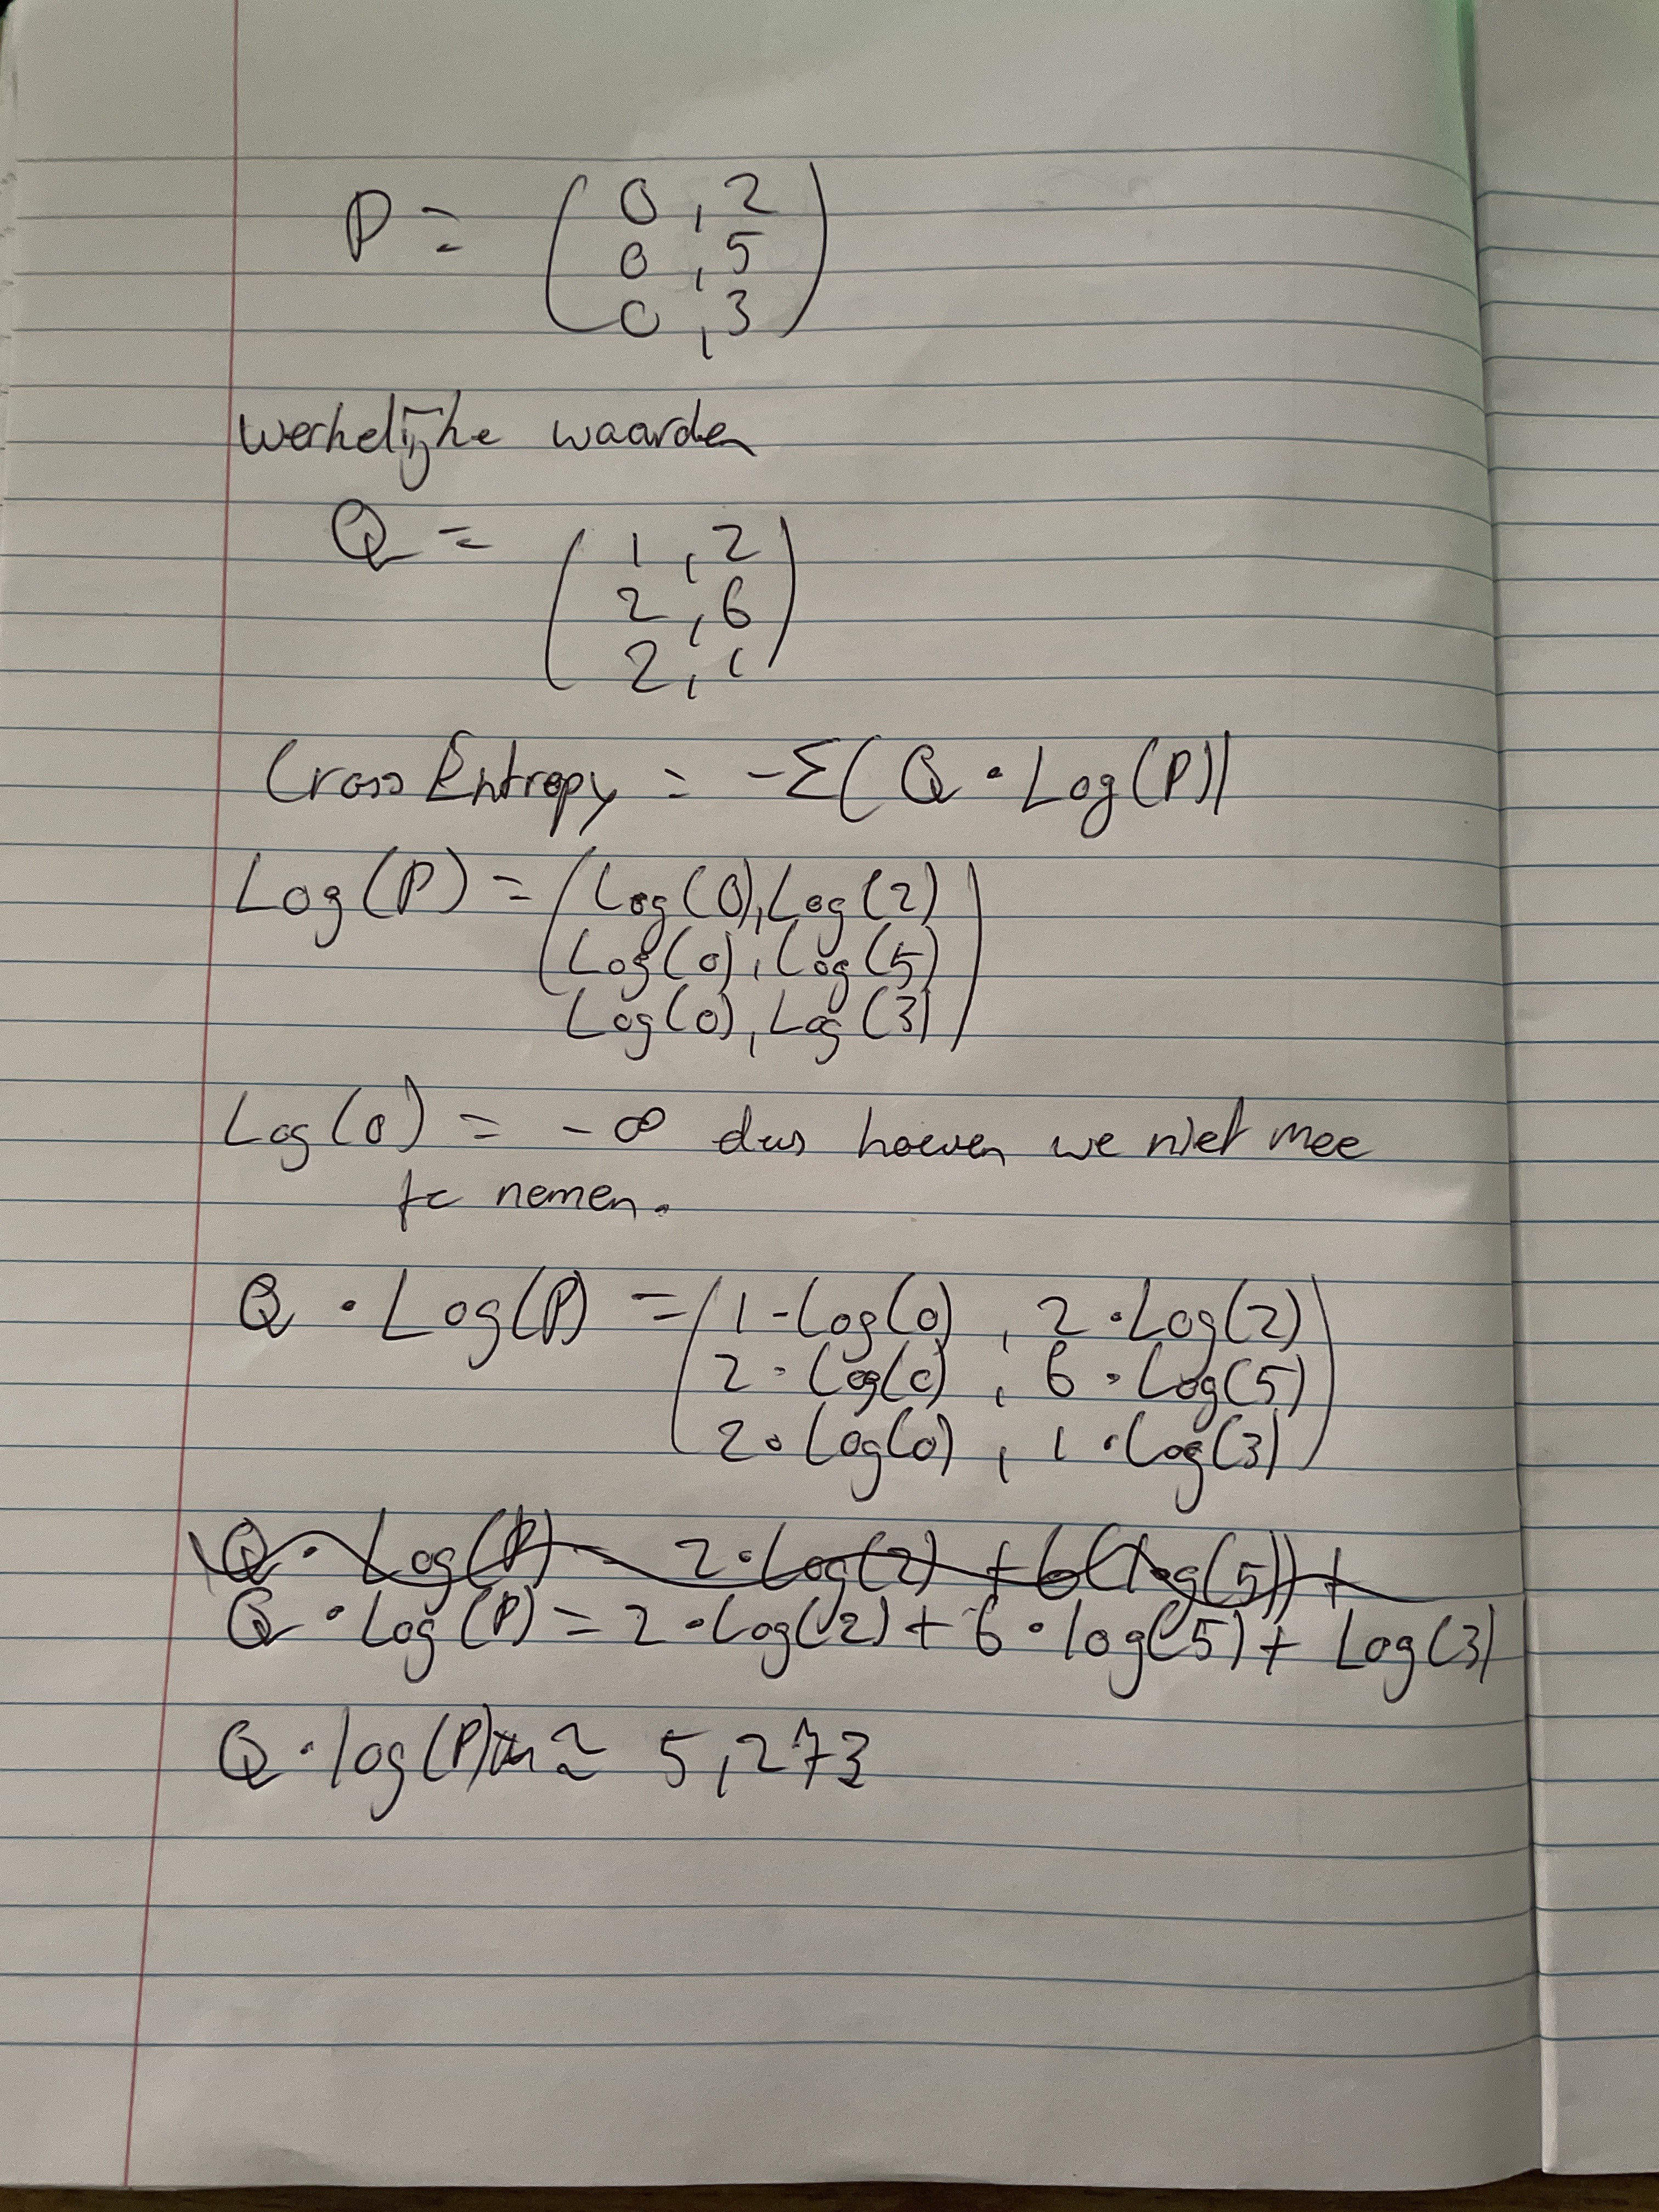 P = ( 0 , 2
0 , 5
0 , 3 )
werkelijke waarden
Q = ( 1 , 2
2 , 6
2 , 1 )
Cross Entropy = -Σ( Q · Log(P))
Log(P) = ( Log(0), Log(2)
Log(0), Log(5)
Log(0), Log(3) )
Log(0) = -∞ dus hoeven we niet mee
te nemen.
Q · Log(P) = ( 1 - Log(0) , 2 · Log(2)
2 · Log(0) , 6 · Log(5)
2 · Log(0) , 1 · Log(3) )
Q · Log(P) = 2 · Log(2) + 6(log(5)) +
Q · Log(P) = 2 · Log(2) + 6 · log(5) + Log(3)
Q · log(P) ≈ 5,273